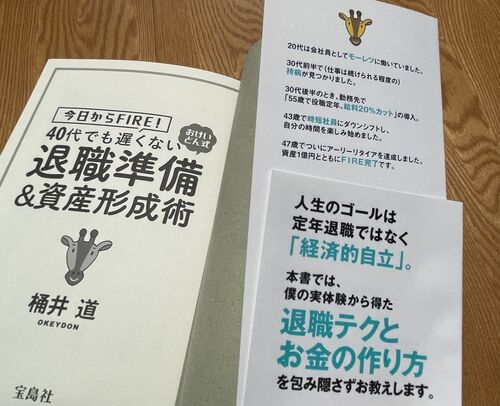 今日からFIRE!
おけいどん式
40代でも遅くない
退職準備
&資産形成術
桶井 道
OKEYDON
宝島社
20代は会社員としてモーレツに働いていました。
30代前半で(仕事は続けられる程度の)
持病が見つかりました。
30代後半のとき、勤務先で
「55歳で役職定年、給料20%カット」の導入。
43歳で時短社員にダウンシフトし、
自分の時間を楽しみ始めました。
47歳でついにアーリーリタイアを達成しました。
資産1億円とともにFIRE完了です。
人生のゴールは
定年退職ではなく
「経済的自立」。
本書では、
僕の実体験から得た
退職テクと
お金の作り方
を包み隠さずお教えします。